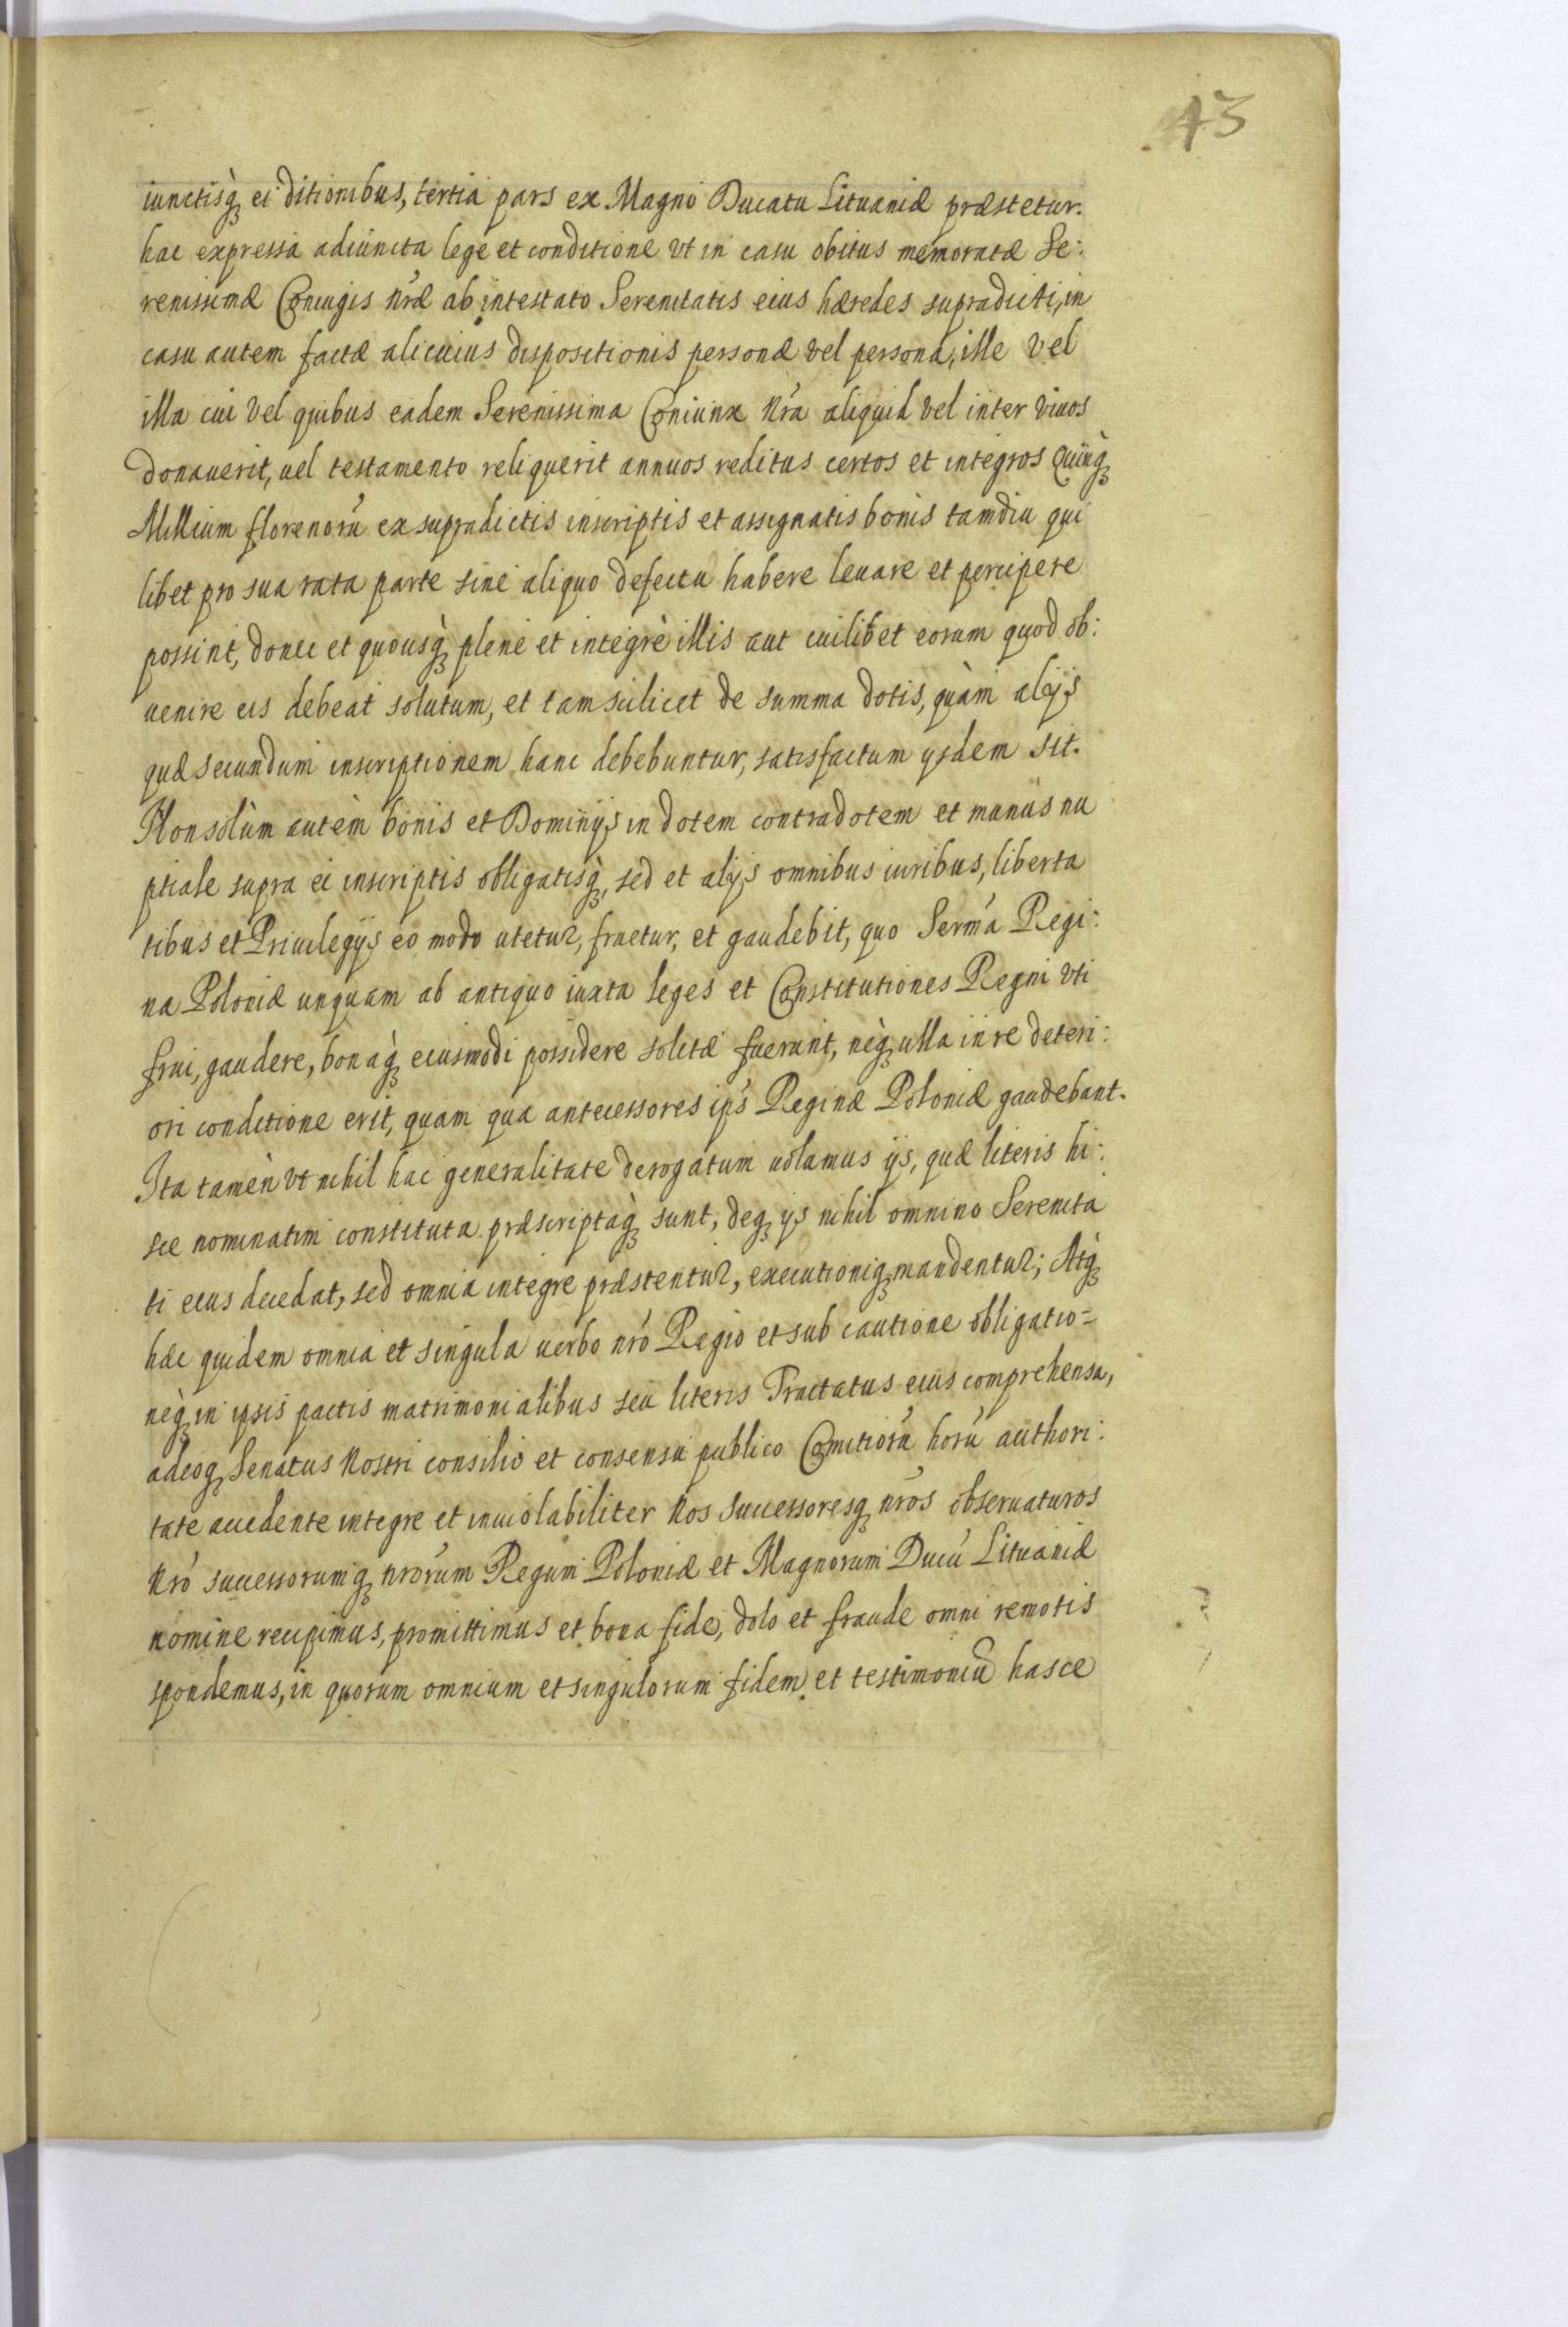 43
iunctisq̀ꝫ ei ditionibus, tertia pars ex Magno Ducatu Lituaniæ præstetur.
hac expressa adiuncta lege et conditione vt in casu obitus memoratæ Se:
renissimæ Coniugis nr̃æ ab intestato Serenitatis eius hæredes supradicti, in
casu autem factæ alicuius dispositionis personæ vel persona, ille vel
illa cui vel quibus eadem Serenissima Coniunx nr̃a aliquid vel inter viuos
donauerit, uel testamento reliquerit annuos reditus certos et integros Quinq̀ꝫ
Millium florenorũ ex supradictis inscriptis et assignatis bonis tamdiu qui
libet pro sua rata parte sine aliquo defectu habere leuare et percipere
possint, donec et quousq̀ꝫ plene et integrè illis aut cuilibet eorum quod ob:
uenire eis debeat solutum, et tam scilicet de summa dotis, quàm alijs
quæ secundum inscriptionem hanc debebuntur, satisfactum ysdem sit.
Non solùm autèm bonis et Dominijs in dotem contradotem et munus nu
ptiale supra ei inscriptis obligatisq̀ꝫ, sed et alijs omnibus iuribus, liberta
tibus et Priuilegijs eo modo utetur, fruetur, et gaudebit, quo Serm̃a Regi:
na Poloniæ unquam ab antiquo iuxta leges et Constitutiones Regni vti
frui, gaudere, bonaq̀ꝫ eiusmodi possidere solitæ fuerunt, nèqꝫ ulla in re deteri:
ori conditione erit, quam qua antecessores ip̃s Reginæ Poloniæ gaudebant.
Ita tamèn vt nihil hac generalitate derogatum uolumus ijs, quæ literis hi:
sce nominatim constituta præscriptaq̀ꝫ sunt, deqꝫ ijs nihil omnino Serenita
ti eius decedat, sed omnia integre præstentur, executioniqꝫ mandentur; Atq̀ꝫ
hæc quidem omnia et singula uerbo nr̃o Regio et sub cautione obligatio=
nèqꝫ in ipsis pactis matrimonialibus seu literis Tractatus eius comprehensa,
adeoqꝫ Senatus Nostri consilio et consensu publico Comitiorũ horũ authori:
tate accedente integre et inuiolabiliter Nos Successoresqꝫ nr̃os obseruaturos
Nr̃o successorumqꝫ nr̃orum Regum Poloniæ et Magnorum Ducũ Lituaniæ
nomine recipimus, promittimus et bona fide, dolo et fraude omni remotis
spondemus, in quorum omnium et singulorum fidem et testimoniũ hasce